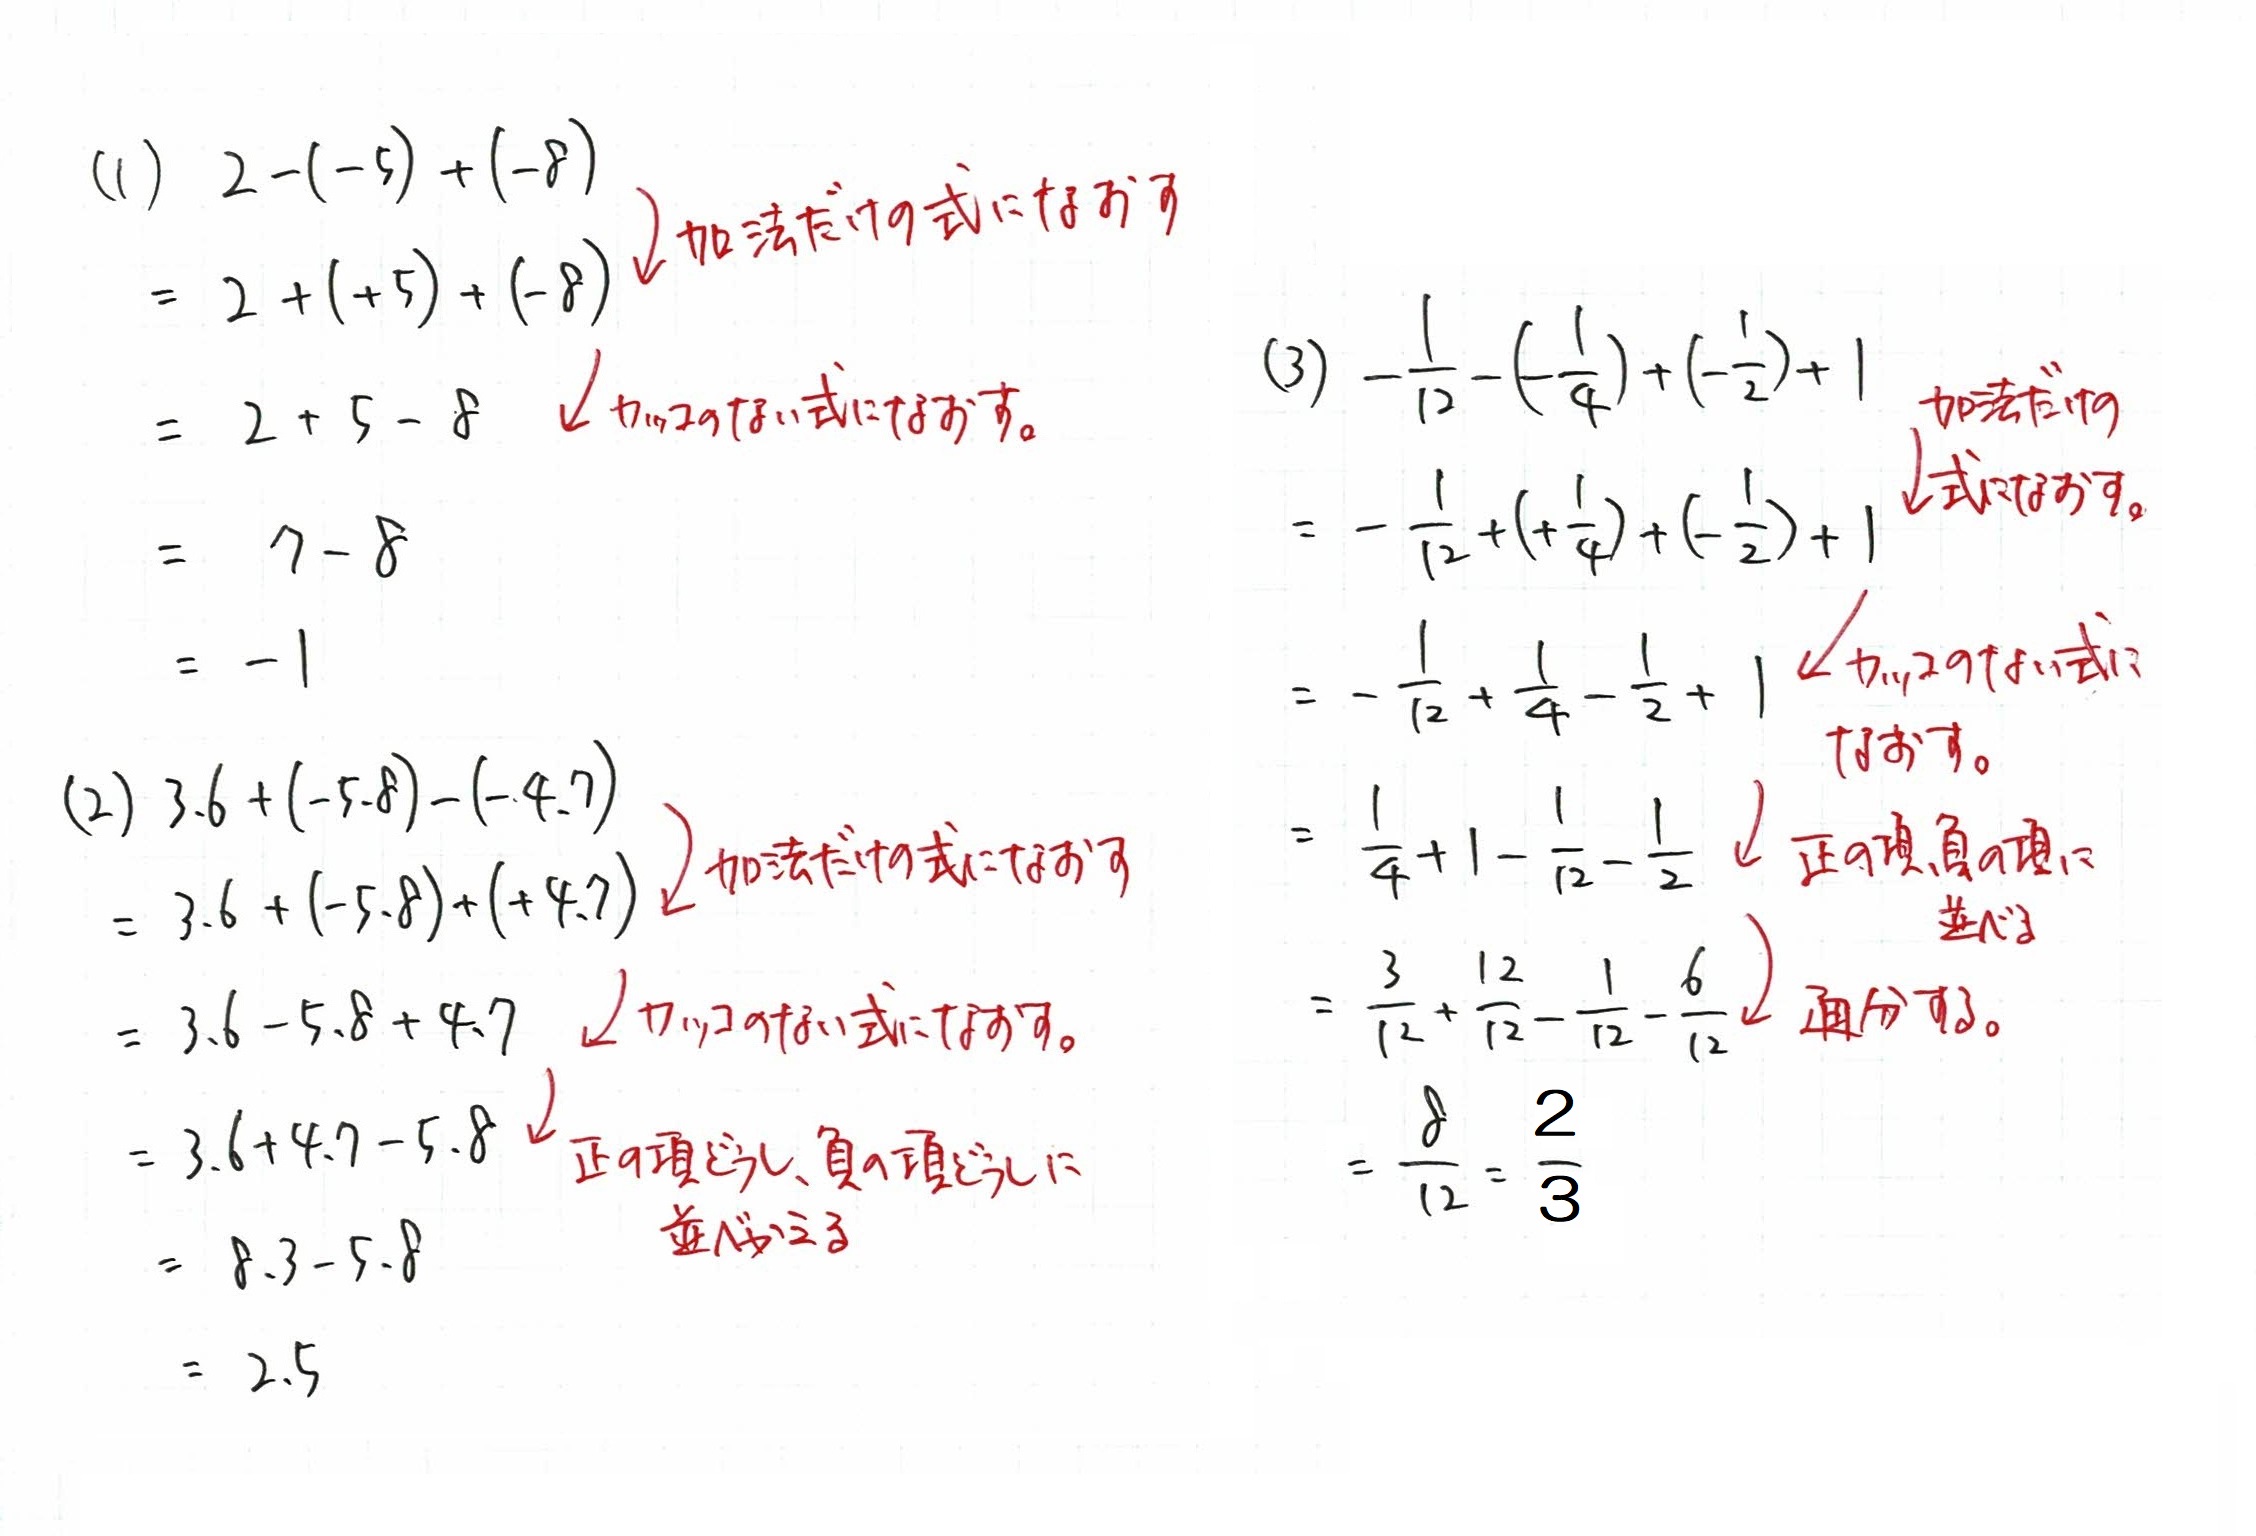 (1) 2-(-5)+(-8)
加法だけの式になおす
= 2+(+5)+(-8)
= 2+5-8
カッコのない式になおす。
= 7-8
= -1
(2) 3.6+(-5.8)-(-4.7)
加法だけの式になおす
= 3.6+(-5.8)+(+4.7)
= 3.6-5.8+4.7
カッコのない式になおす。
= 3.6+4.7-5.8
正の項どうし、負の項どうしに
並べかえる
= 8.3-5.8
= 2.5
(3) -1/12-(-1/4)+(-1/2)+1
加法だけの
式になおす。
= -1/12+(+1/4)+(-1/2)+1
= -1/12+1/4-1/2+1
カッコのない式に
なおす。
= 1/4+1-1/12-1/2
正の項、負の項に
並べる
= 3/12+12/12-1/12-6/12
通分する。
= 8/12=2/3